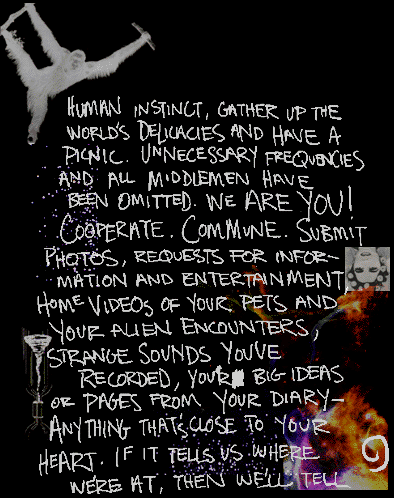 HUMAN INSTINCT, GATHER UP THE
WORLD'S DELICACIES AND HAVE A
PICNIC. UNNECESSARY FREQUENCIES
AND ALL MIDDLEMEN HAVE
BEEN OMITTED. WE ARE YOU!
COOPERATE. COMMUNE. SUBMIT
PHOTOS, REQUESTS FOR INFOR-
MATION AND ENTERTAINMENT,
HOME VIDEOS OF YOUR PETS AND
YOUR ALIEN ENCOUNTERS,
STRANGE SOUNDS YOU'VE
RECORDED, YOUR BIG IDEAS
OR PAGES FROM YOUR DIARY-
ANYTHING THAT'S CLOSE TO YOUR
HEART. IF IT TELLS US WHERE
WE'RE AT, THEN WE'LL TELL
9